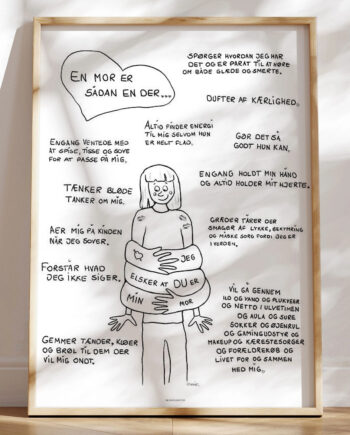 EN MOR ER
SÅDAN EN DER...
SPØRGER HVORDAN JEG HAR
DET OG ER PARAT TIL AT HØRE
OM BÅDE GLÆDE OG SMERTE.
DUFTER AF KÆRLIGHED.
ALTID FINDER ENERGI
TIL MIG SELVOM HUN
ER HELT FLAD.
GØR DET SÅ
GODT HUN KAN.
ENGANG VENTEDE MED
AT SPISE, TISSE OG SOVE
FOR AT PASSE PÅ MIG.
ENGANG HOLDT MIN HÅND
OG ALTID HOLDER MIT HJERTE.
TÆNKER BLØDE
TANKER OM MIG.
GRÆDER TÅRER DER
SMAGER AF LYKKE, BEKYMRING
OG MÅSKE SORG FORDI JEG ER
I VERDEN.
AER MIG PÅ KINDEN
NÅR JEG SOVER.
FORSTÅR HVAD
JEG IKKE SIGER.
JEG
ELSKER AT DU ER
MIN MOR
VIL GÅ GENNEM
ILD OG VAND OG FLUKVEJER
OG NETTO I ULVETIMEN
OG AULA OG SURE
SOKKER OG ØJENRUL
OG GAMINGUDSTYR OG
MAKEUP OG KÆRESTESORGER
OG FORÆLDREKØB OG
LIVET FOR OG SAMMEN
MED MIG..
GEMMER TÆNDER, KØBER
OG BRØL TIL DEM DER
VIL MIG ONDT.